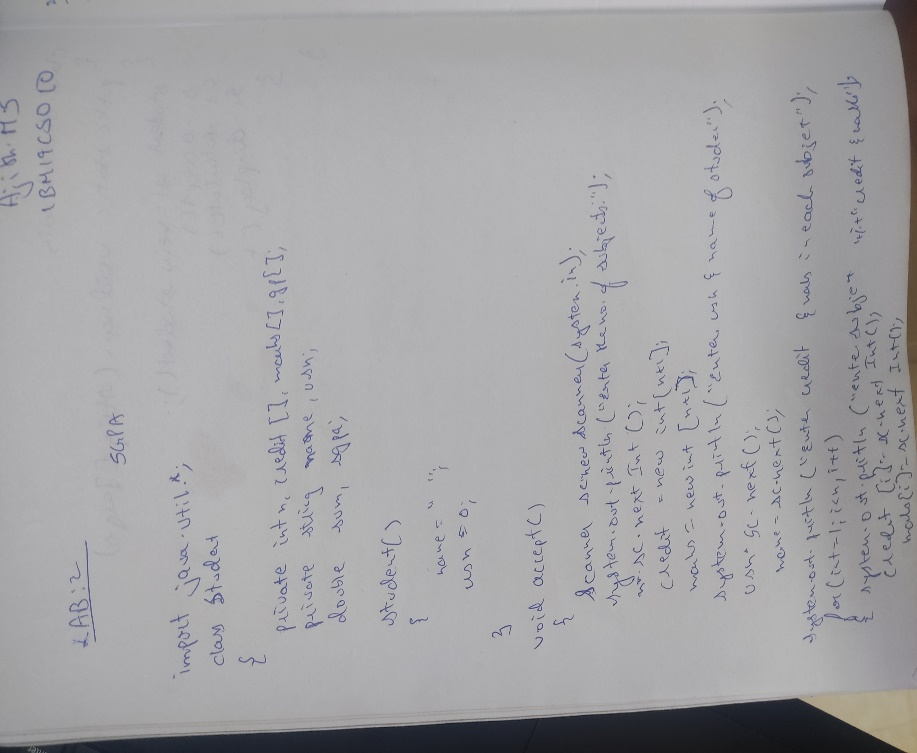 Ajith. M S
1BM19CS010
LAB:2
SGPA
import java.util.*;
class Student
{
private int n, credit [], marks[], gp[];
private string name, usn;
double sum, sgpa;
student()
{
name = " ";
usn = 0;
}
void accept()
{
Scanner sc=new Scanner(System.in);
System.out.println ("enter the no. of subjects.");
n=sc.next Int ();
credit = new int [n+1];
marks = new int [n+1];
System.out.println ("enter usn & name of studet");
usn= sc. next();
name = sc.next();
System.out.println ("enter credit & maks in each subject");
for (int=1; i<n; i++)
{ system.out.println ("ente subjet "+i+" credit & maks");
credit [i]= sc.next Int();
maks[i]= sc.next Int();